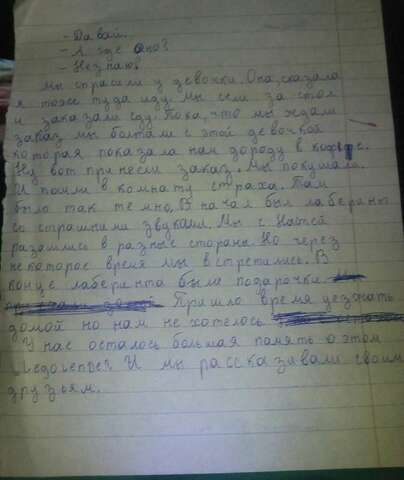 - Давай.
- А где оно?
- Незнаю!
Мы спрасили у девочки. Она, сказала
я тоже туда иду. Мы сели за стол
и заказали еду. Пока, что мы ждали
заказ мы болтали с этой девочкой
которая показала нам дорогу в кафе.
Ну вот принесли заказ. Мы покушали.
И пошли в комнату страха. Там
было так темно, В начал был лаберинт
со страшными звуками. Мы с Настей
разашлись в разные стораны. Но через
некоторое время мы встретились. В
конце лаберинта были подарочки.
Пришло время уезжать
домой но нам не хотелось
У нас осталось большая память о этом
И мы рассказавали своим
друзьям.